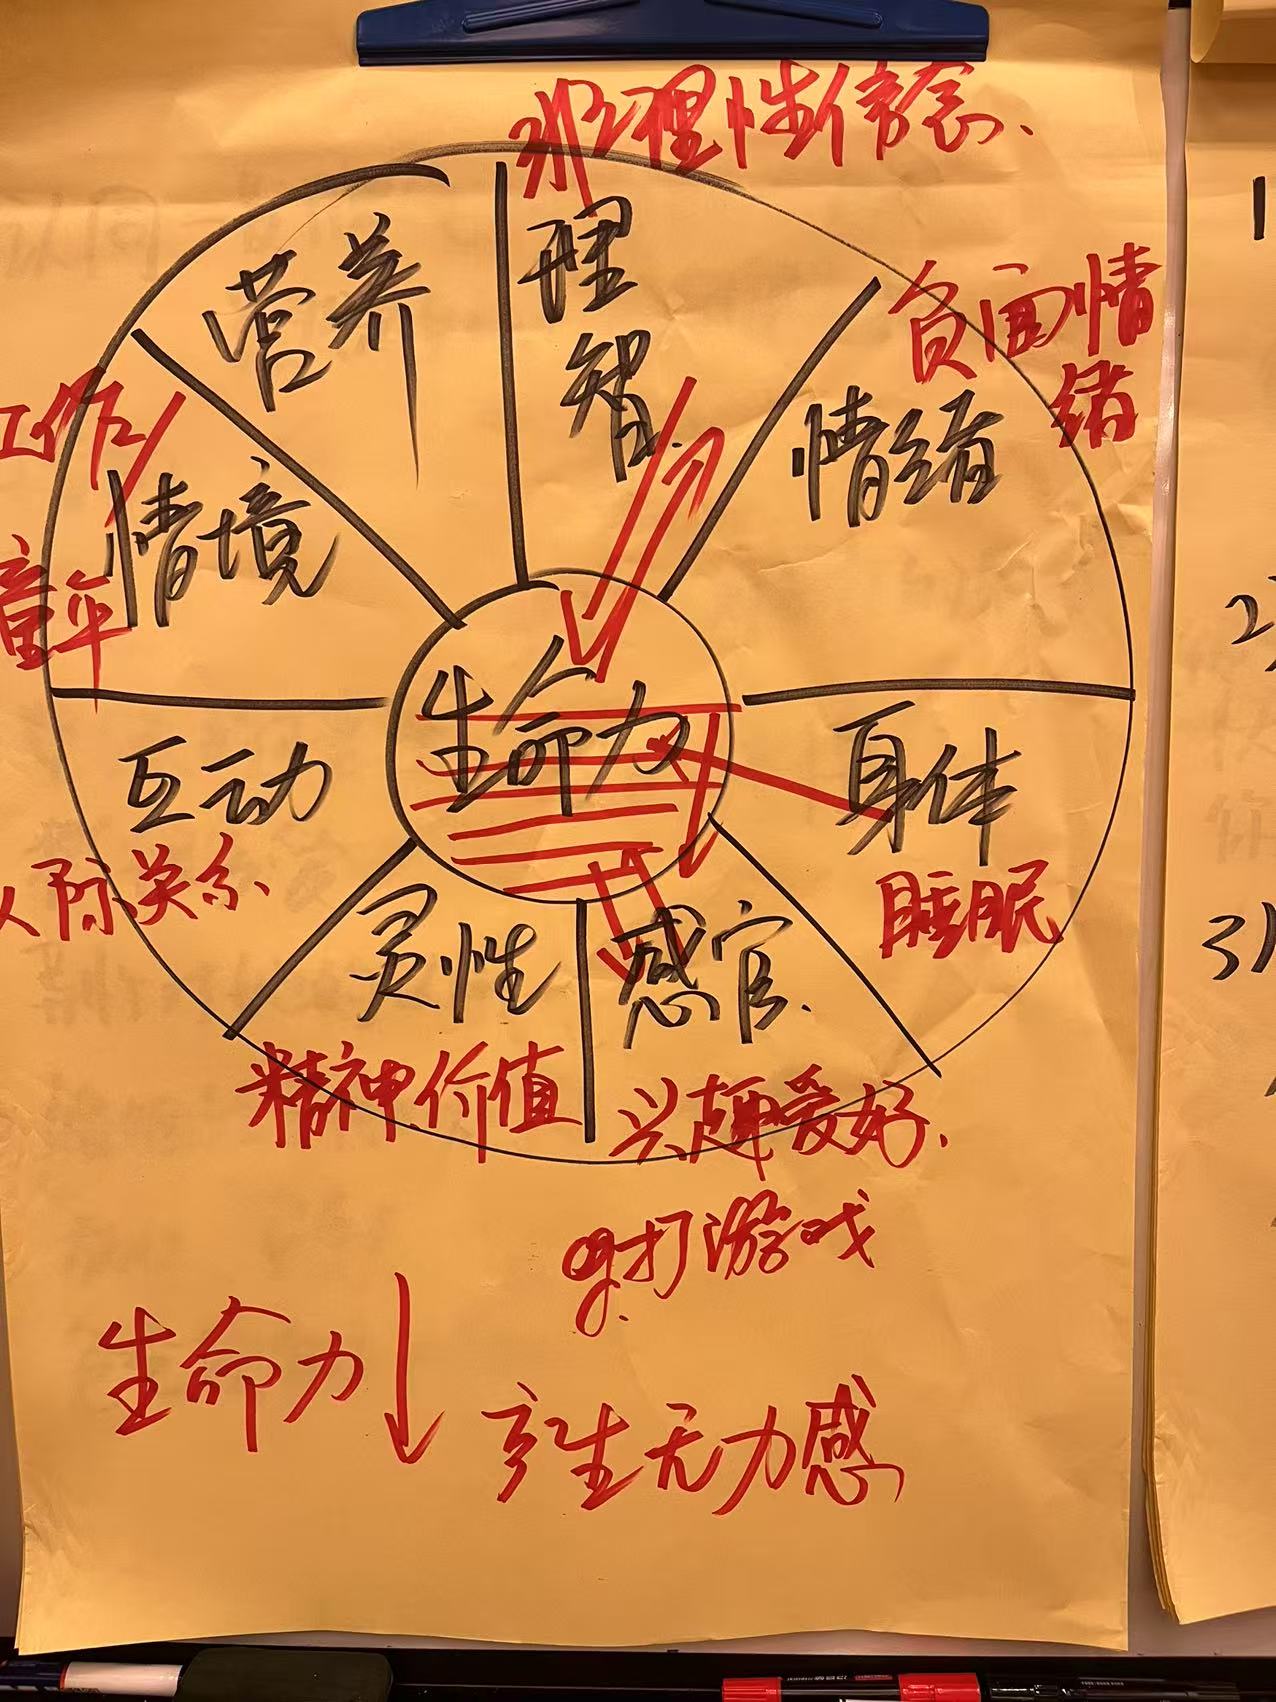 理性信念.
营养
理智
负面情绪
情绪
工作
情境
童年
生命力
互动
身体
人际关系
睡眠
灵性
感官.
精神价值
兴趣爱好.
打游戏
生命力↓
产生无力感
1
2)
3)